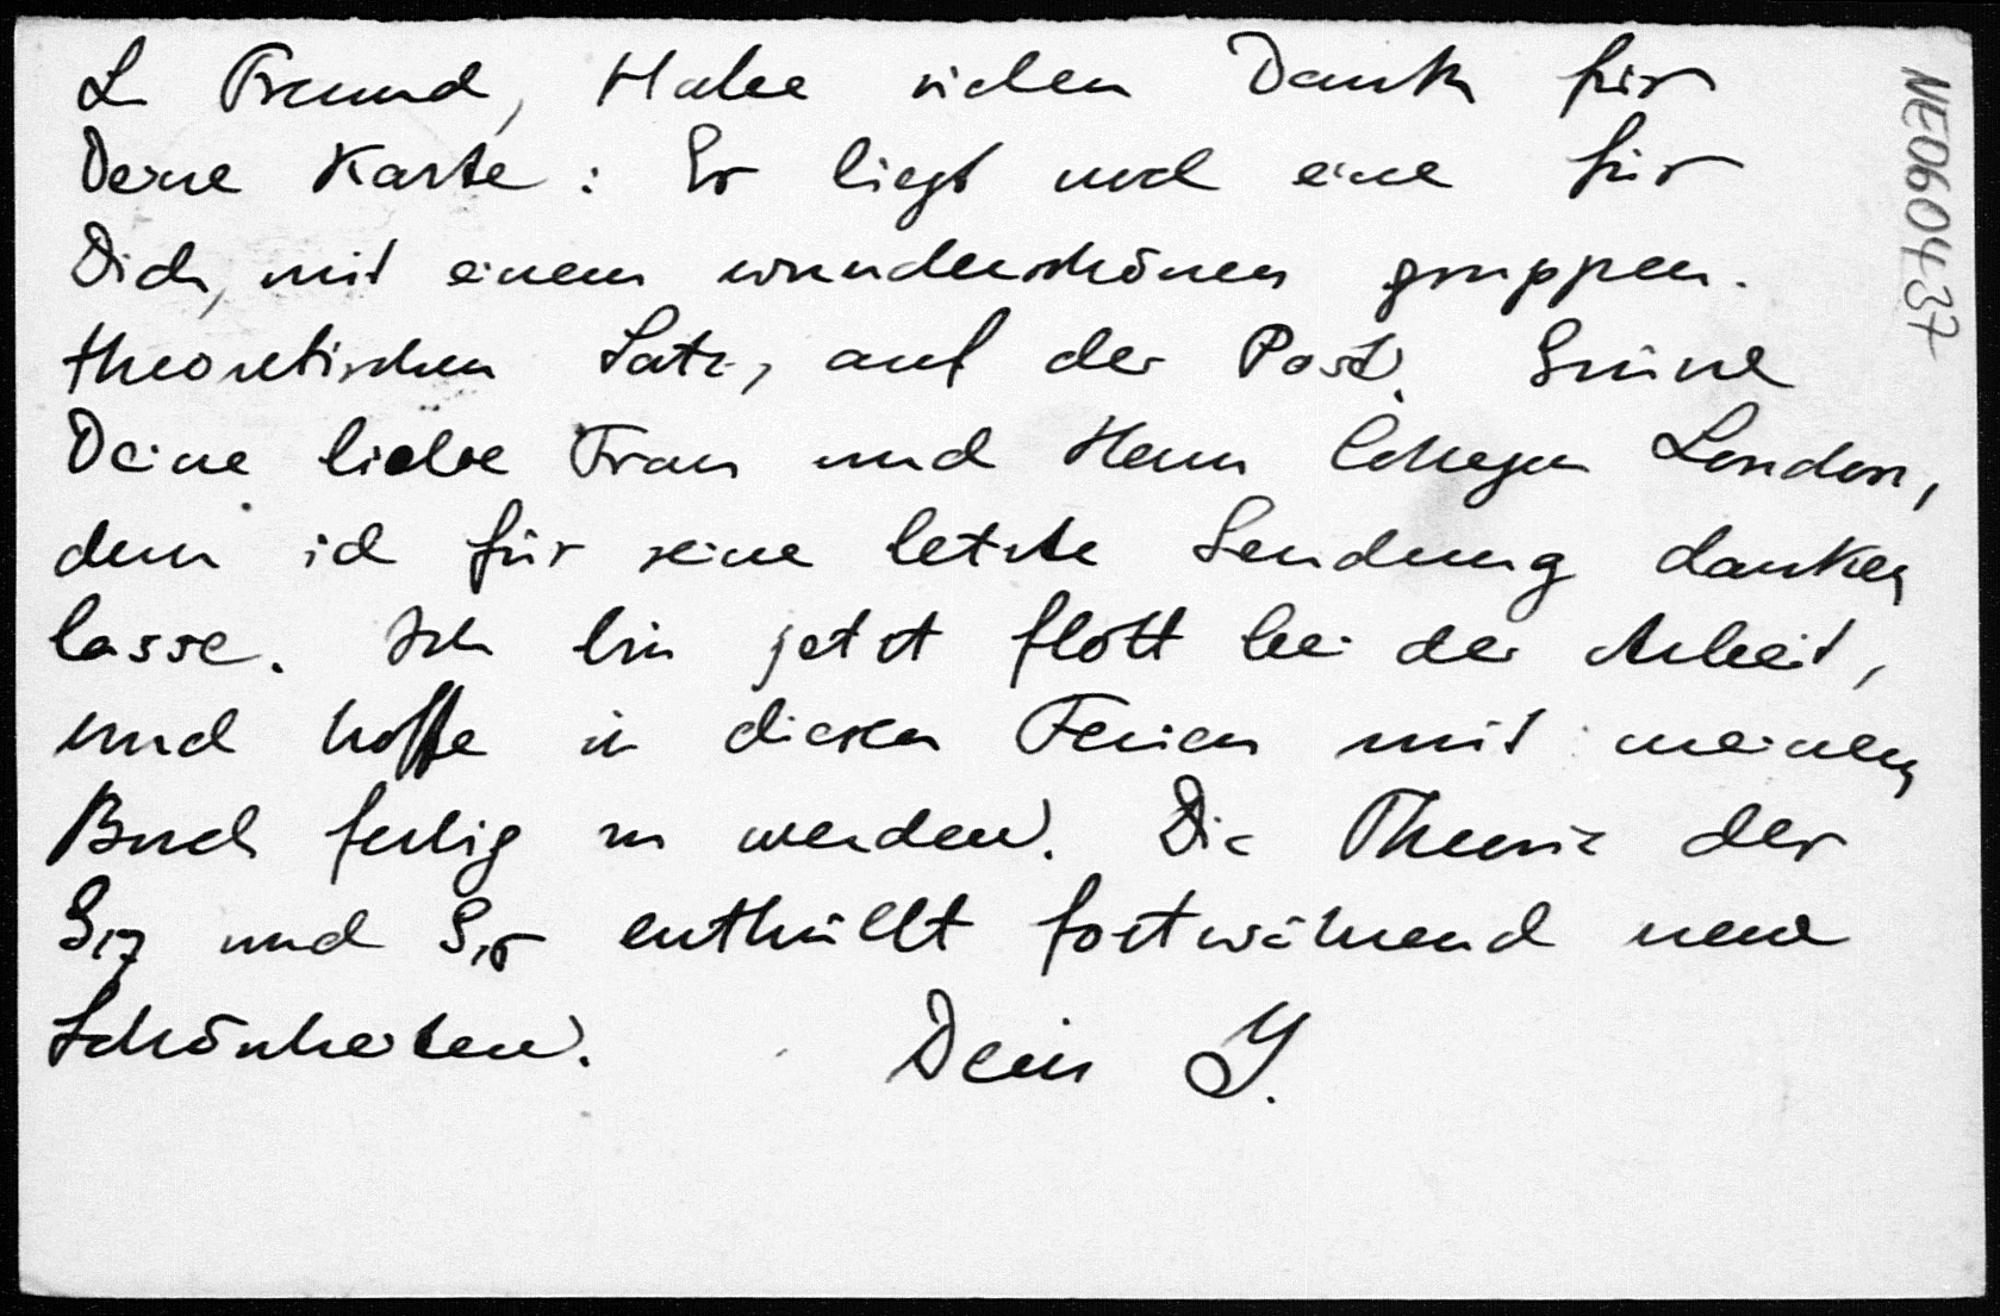 L Freund, Habe vielen Dank für
Deine Karte: Es liegt noch eine für
Dich, mit einem wunderschönen gruppen-
theoretischen Satz, auf der Post. Grüsse
Deine liebe Frau und Herrn London,
dem ich für seine letzte Sendung danken
lasse. Ich bin jetzt flott bei der Arbeit,
und hoffe in diesen Ferien mit meinem
Buch fertig zu werden. Die Theorie der
und enthüllt fortwährend neue
Schönheiten. Dein
NE060437